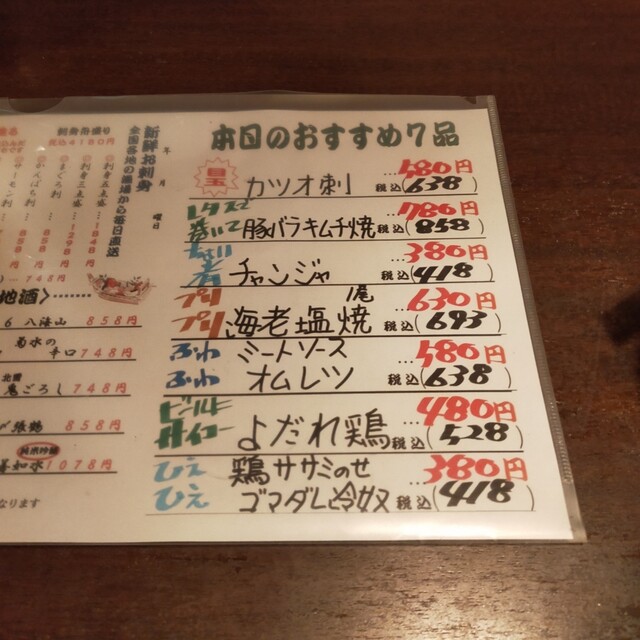 本日のおすすめ7品
目玉 カツオ刺 …580円
税込(638)
レタスで巻いて 豚バラキムチ焼 …780円
税込(858)
チャンジャ …380円
税込(418)
プリプリ 海老塩焼 1尾 …630円
税込(693)
ふわふわ ミートソース
オムレツ …580円
税込(638)
ビールに サイコー よだれ鶏 …480円
税込(528)
ひえひえ 鶏ササミのせ
ゴマダレ冷奴 …380円
税込(418)
新鮮お刺身
全国各地の漁場から毎日直送
年 月 曜日
税込4180円
1848円
1298円
858円
748円
地酒〉
八海山 858円
菊水の
辛口 748円
北雪
鬼ころし 748円
〆張鶴 858円
純米吟醸
善如水 1078円
なります